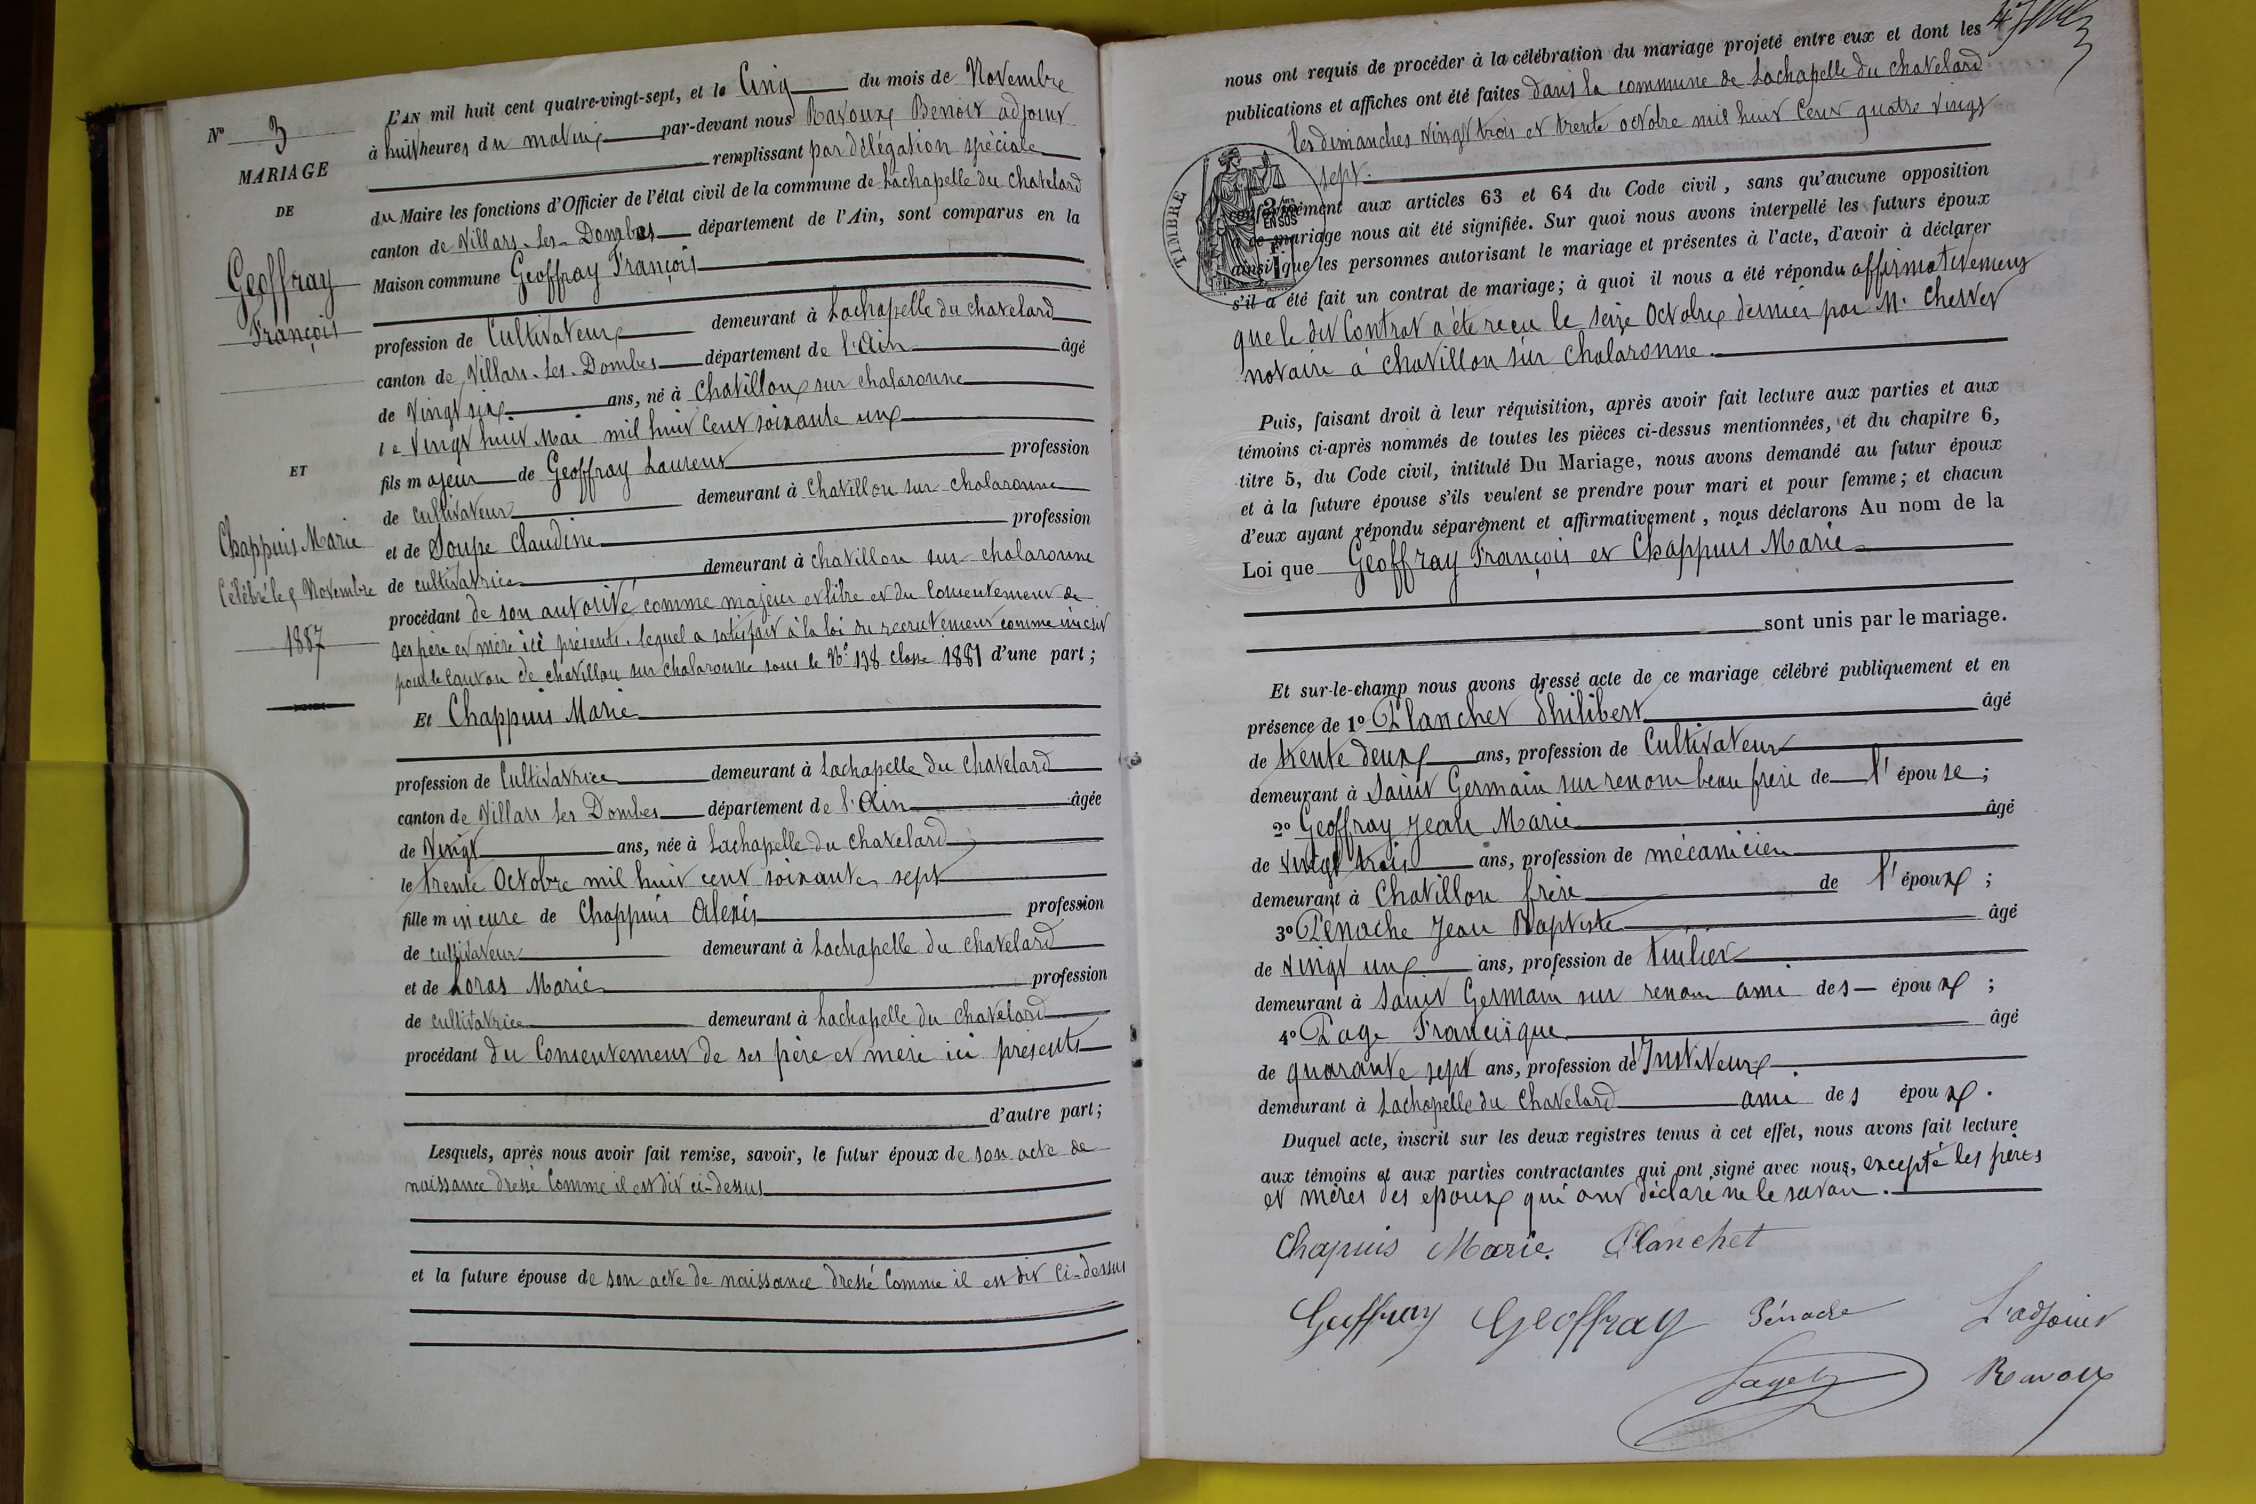 N° 3
MARIAGE
DE
Geoffray
François
ET
Chappuis Marie
Célébré le 5 Novembre
1887
L'AN mil huit cent quatre-vingt-sept, et le Cinq du mois de Novembre
à huit heures du matin par-devant nous Ravoux Benoit adjoint
remplissant par délégation spéciale
du Maire les fonctions d'Officier de l'état civil de la commune de Lachapelle du Chatelard
canton de Villars-Les-Dombes département de l'Ain, sont comparus en la
Maison commune Geoffray François
profession de Cultivateur demeurant à Lachapelle du chatelard
canton de Villars-Les-Dombes département de l'Ain âgé
de Vingt six ans, né à Chatillon sur chalaronne
le Vingt huit Mai mil huit Cent soixante un
fils majeur de Geoffray Laurent profession
de cultivateur demeurant à Chatillon sur chalaronne
et de Soupe Claudine profession
de cultivatrice demeurant à chatillon sur chalaronne
procédant de son autorité comme majeur et libre et du Consentement de
ses père et mère ici présents. lequel a satisfait à la loi du recrutement comme inscrit
pour le canton de chatillon sur chalaronne sous le N° 138 classe 1881 d'une part;
Et Chappuis Marie
profession de Cultivatrice demeurant à Lachapelle du Chatelard
canton de Villars Les Dombes département de l'Ain âgée
de Vingt ans, née à Lachapelle du Chatelard
le trente Octobre mil huit cent soixante sept
fille mineure de Chappuis Alexis profession
de cultivateur demeurant à Lachapelle du Chatelard
et de Loras Marie profession
de cultivatrice demeurant à Lachapelle du Chatelard
procédant du Consentement de ses père et mère ici présents
d'autre part;
Lesquels, après nous avoir fait remise, savoir, le futur époux de son acte de
naissance dressé Comme il est dit ci-dessus
et la future épouse de son acte de naissance dressé Comme il est dit Ci-dessus
nous ont requis de procéder à la célébration du mariage projeté entre eux et dont les
publications et affiches ont été faites dans la commune de Lachapelle du chatelard
les dimanches vingt trois et trente octobre mil huit Cent quatre vingt
sept.
TIMBRE
EN SUS
conformément aux articles 63 et 64 du Code civil, sans qu'aucune opposition
à ce mariage nous ait été signifiée. Sur quoi nous avons interpellé les futurs époux
ainsi que les personnes autorisant le mariage et présentes à l'acte, d'avoir à déclarer
s'il a été fait un contrat de mariage; à quoi il nous a été répondu affirmativement
que le dit Contrat a été reçu le seize Octobre dernier par M.
notaire à Chatillon sur Chalaronne.
Puis, faisant droit à leur réquisition, après avoir fait lecture aux parties et aux
témoins ci-après nommés de toutes les pièces ci-dessus mentionnées, et du chapitre 6,
titre 5, du Code civil, intitulé Du Mariage, nous avons demandé au futur époux
et à la future épouse s'ils veulent se prendre pour mari et pour femme; et chacun
d'eux ayant répondu séparément et affirmativement, nous déclarons Au nom de la
Loi que Geoffray François et Chappuis Marie
sont unis par le mariage.
Et sur-le-champ nous avons dressé acte de ce mariage célébré publiquement et en
présence de 1° Planchet Philibert âgé
de trente deux ans, profession de Cultivateur
demeurant à Saint Germain sur renom beau frère de l'épouse;
2° Geoffray Jean Marie âgé
de vingt trois ans, profession de mécanicien
demeurant à Chatillon frère de l'époux;
3° Pénache Jean Baptiste âgé
de vingt un ans, profession de tuilier
demeurant à Saint Germain sur renom ami des époux;
4° Page Francisque âgé
de quarante sept ans, profession de Instituteur
demeurant à Lachapelle du Chatelard ami des époux.
Duquel acte, inscrit sur les deux registres tenus à cet effet, nous avons fait lecture
aux témoins et aux parties contractantes qui ont signé avec nous, excepté les pères
et mères des époux qui ont déclaré ne le savoir.
Chapuis Marie. Planchet
Geoffray Geoffray Pénache L'adjoint
Page Ravoux